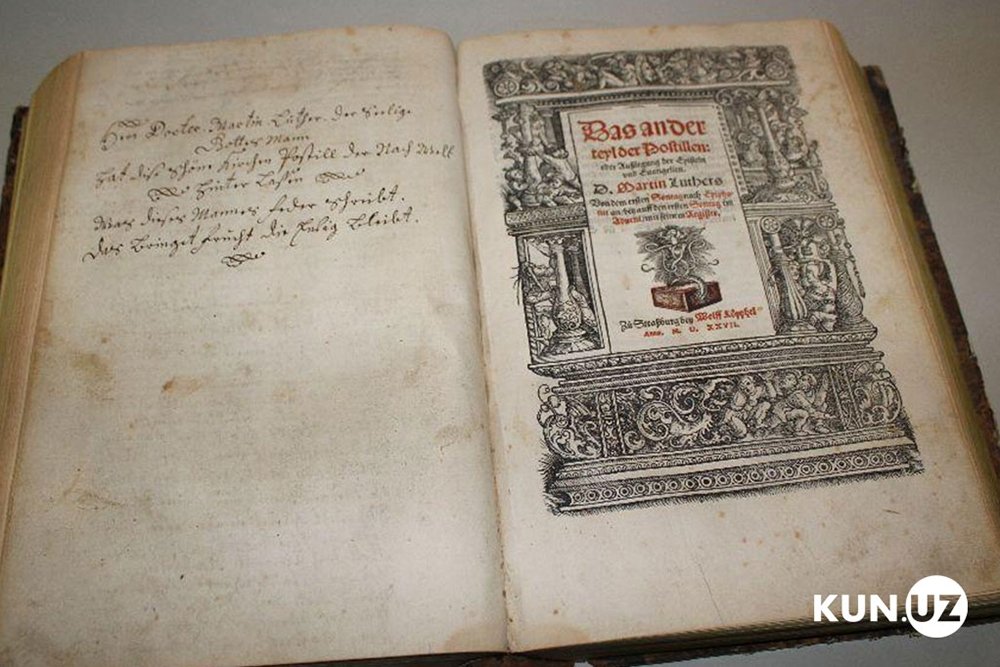 Herr Docter. Martin Luther. der Seelige
Gottes Mann
hat diese schöne Kirchen Postill der Nach Welt
hinter Lassen
Was dieses Mannes feder schreibt.
das bringet frucht die Ewig bleibt.
Das ander
teyl der Postillen:
oder Außlegung der Episteln
und Euangelien.
D. Martin Luthers
Von dem ersten Sontag nach Epipha-
nie an/biß auff den ersten Sontag im
Aduent/mit seinem Register.
Zů Straßburg bey Wolff Köpphel
Anno. M. D. XXVII.
KUN.UZ